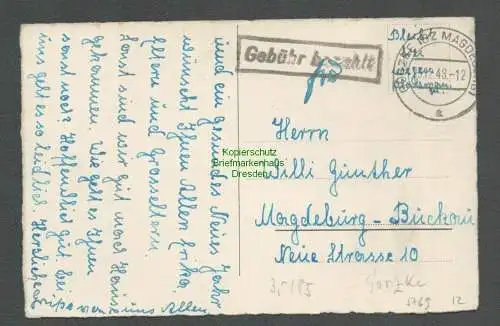 und ein gesundes Neues Jahr
wünscht Ihnen Allen Erika,
Eltern und Grosseltern.
Sonst sind wir gut nach Haus
gekommen. Wie geht es Ihnen
sonst noch? Hoffentlich gut. Bei
uns geht es so leidlich. Herzliche
von uns Allen
Gebühr bezahlt
MAGDEBURG
48.-12
a
Herrn
Willi Günther
Magdeburg-Buckau
Neue Strasse 10
Kopierschutz
Briefmarkenhaus
Dresden
3,-185
Görzke
5769
12